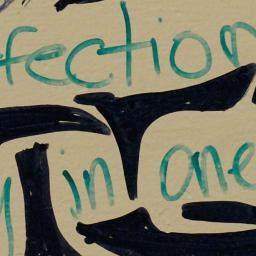 fection
in one